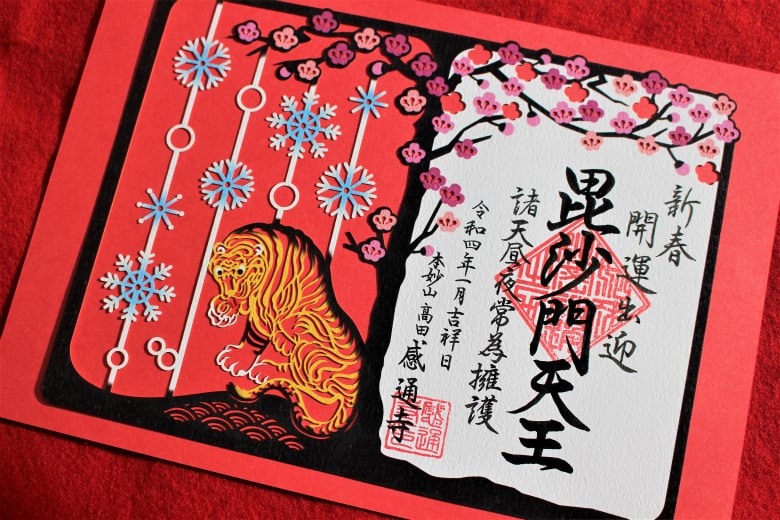 新春
開運出迎
毘沙門天王
諸天昼夜常為擁護
令和四年一月吉祥日
本妙山 高田 感通寺